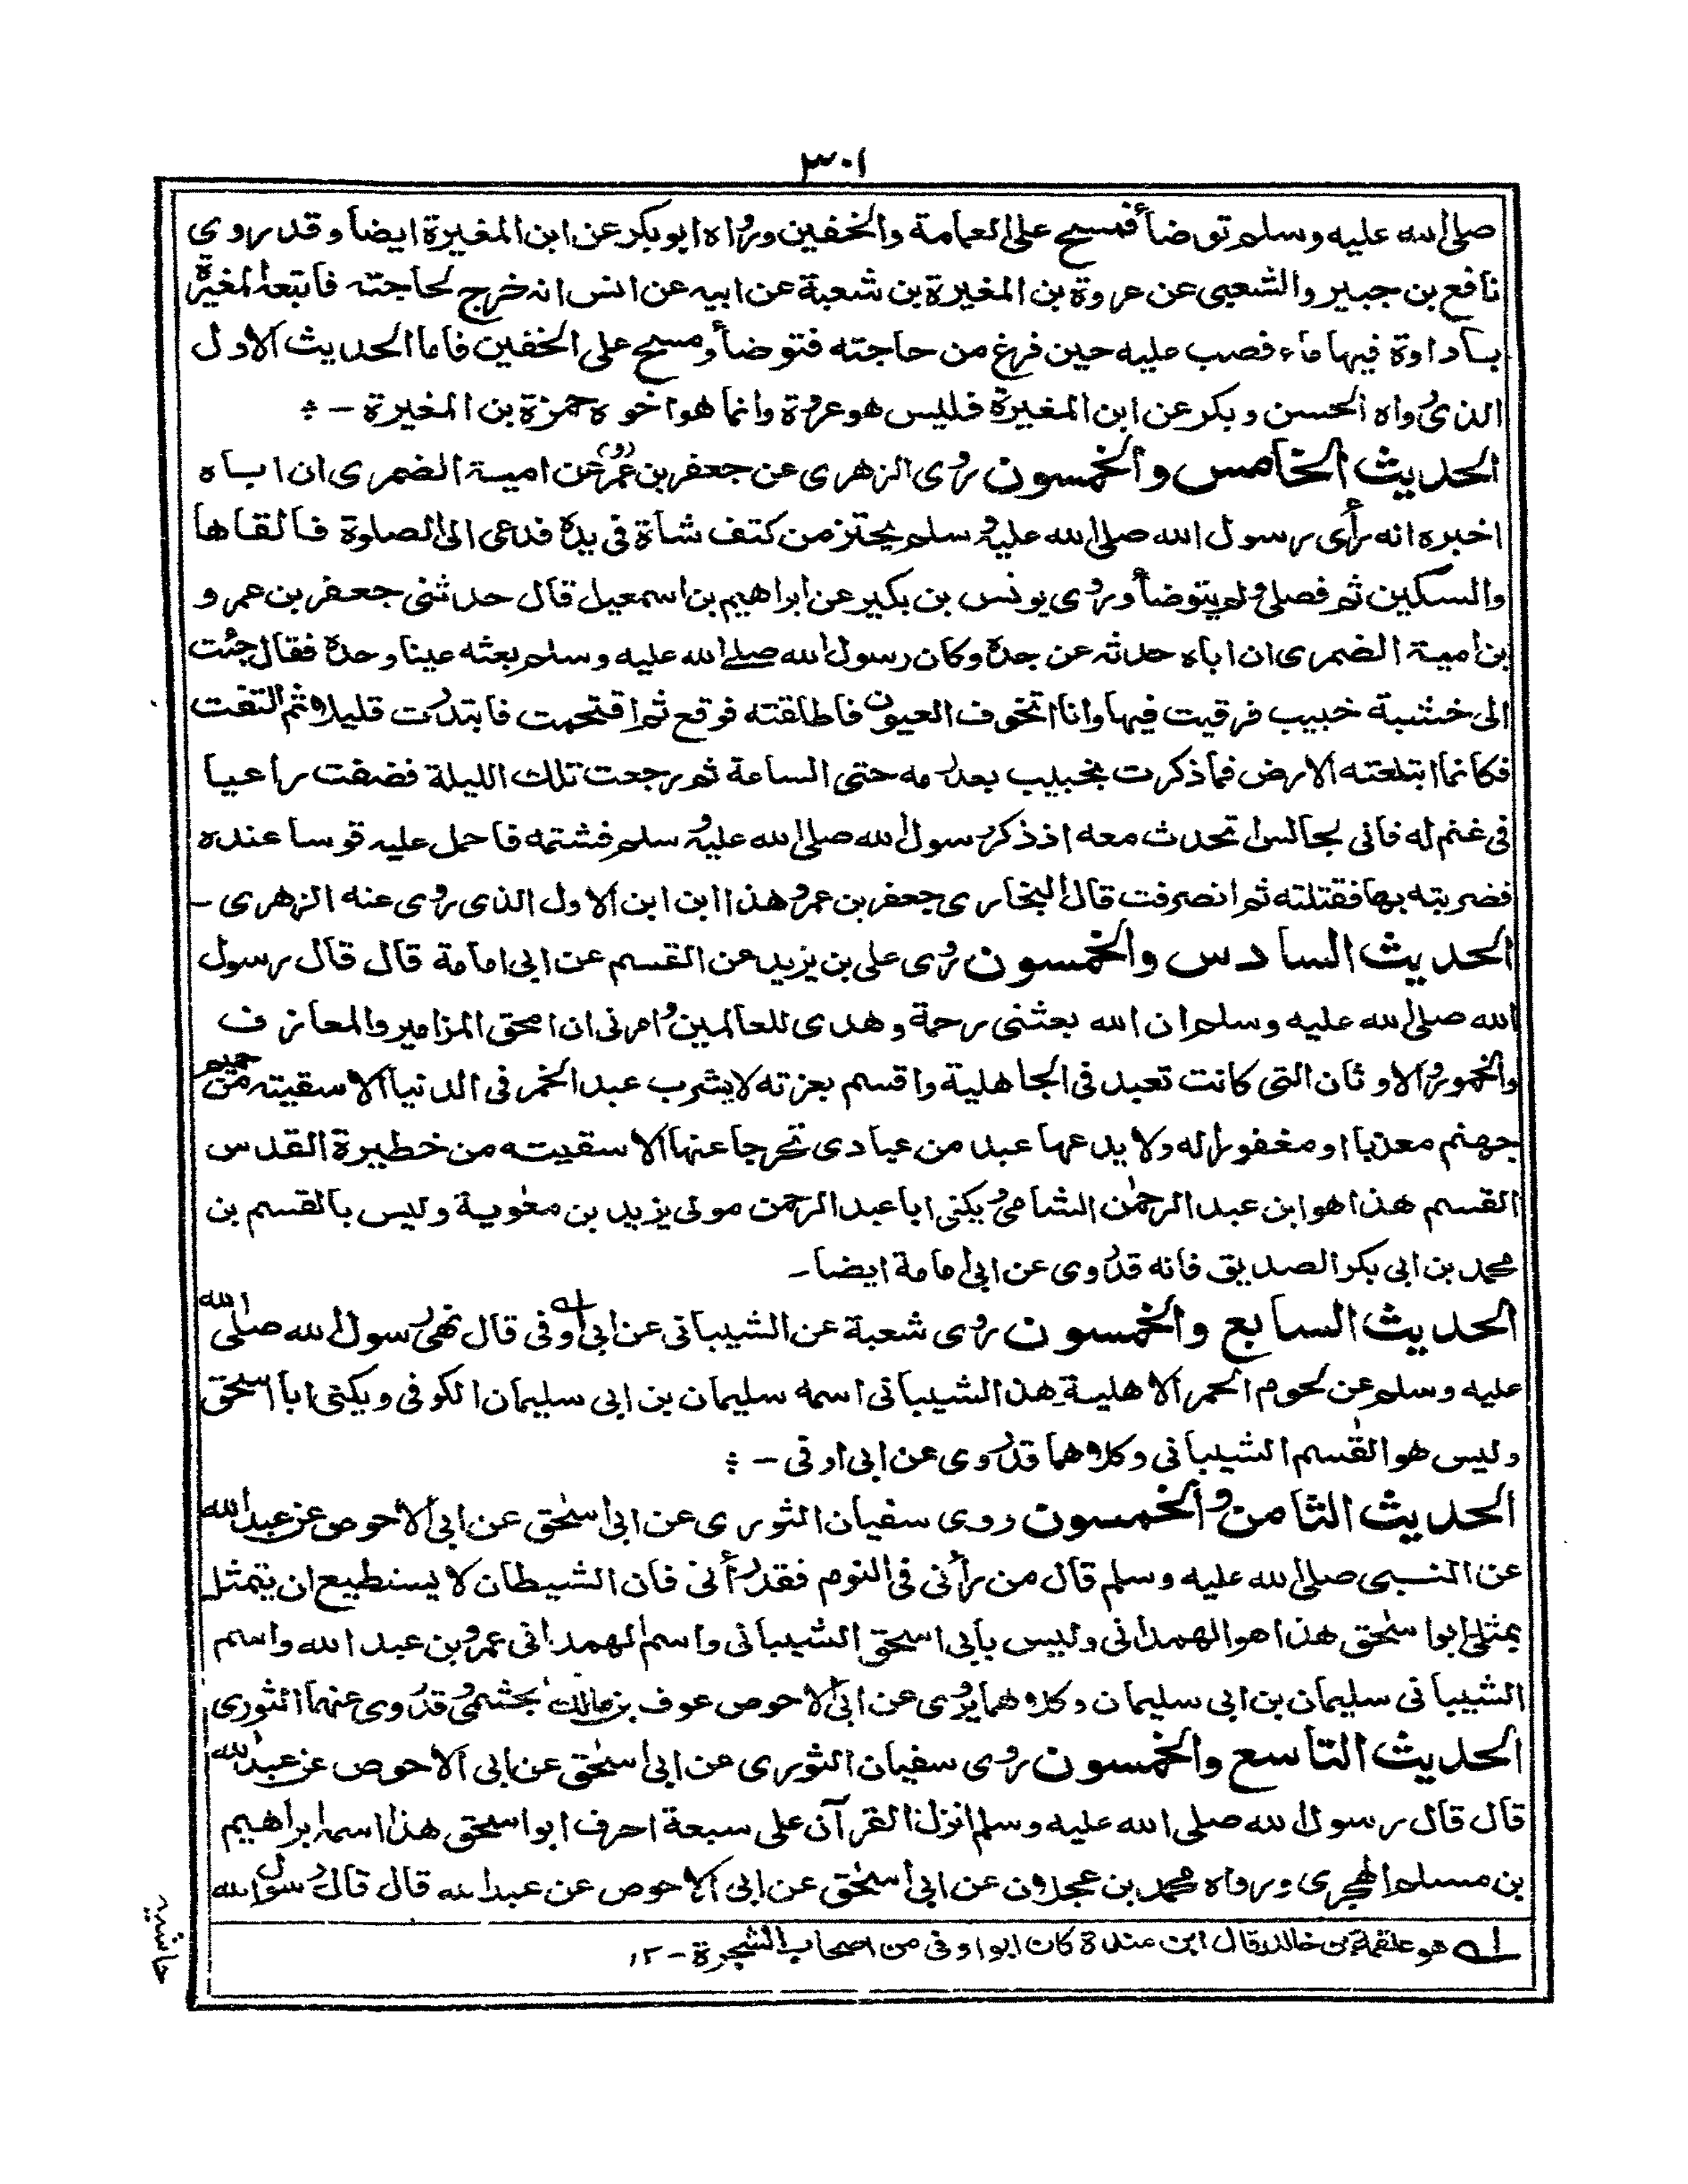 ٣٠١
صلى الله عليه وسلم توضأ فمسح على العمامة والخفين ورواه ابو بكر عن ابن المغيرة ايضا وقد روى
نافع بن جبير والشعبى عن عروة بن المغيرة بن شعبة عن ابيه عن انس انه خرج لحاجته فاتبعه المغيرة
باداوة فيها ماء فصب عليه حين فرغ من حاجته فتوضأ ومسح على الخفين فاما الحديث الاول
الذى رواه الحسن وبكر عن ابن المغيرة فليس هو عروة وانما هو اخوه حمزة بن المغيرة - ÷
الحديث الخامس والخمسون روى الزهرى عن جعفر بن عمرو عن امية الضمرى ان اباه
اخبره انه رأى رسول الله صلى الله عليه وسلم يحتز من كتف شاة فى يده فدعى الى الصلوة فالقاها
والسكين ثم فصلى ولم يتوضأ وروى يونس بن بكير عن ابراهيم بن اسمعيل قال حدثنى جعفر بن عمرو
بن امية الضمرى ان اباه حدثه عن جده وكان رسول الله صلى الله عليه وسلم بعثه عينا وحده فقال جئت
الى خشبة خبيب فرقيت فيها وانا اتخوف العيون فاطلقته فوقع ثم اقتحمت فابتدرت قليلا ثم التفت
فكانما ابتلعته الارض فما ذكرت بخبيب بعد رمه حتى الساعة ثم رجعت تلك الليلة فضفت راعيا
فى غنم له فانى لجالس اتحدث معه اذ ذكر رسول الله صلى الله عليه وسلم فشتمه فاحمل عليه قوسا عنده
فضربته بها فقتلته ثم انصرفت قال البخارى جعفر بن عمرو هذا ابن ابن الاول الذى روى عنه الزهرى -
الحديث السادس والخمسون روى على بن يزيد عن القسم عن ابى امامة قال قال رسول
الله صلى الله عليه وسلم ان الله بعثنى رحمة وهدى للعالمين وامرنى ان امحق المزامير والمعازف
والخمور والاوثان التى كانت تعبد فى الجاهلية واقسم بعزته لا يشرب عبد الخمر فى الدنيا الا سقيته من حميم
جهنم معذبا او مغفورا له ولا يدعها عبد من عبادى تحرجا عنها الا سقيته من خطيرة القدس
القسم هذا هو ابن عبد الرحمٰن الشامى ويكنى ابا عبد الرحمن مولى يزيد بن معٰوية وليس بالقسم بن
محمد بن ابى بكر الصديق فانه قد روى عن ابى امامة ايضا-
الحديث السابع والخمسون روى شعبة عن الشيبانى عن ابى اوفى ؂لہ قال نهى رسول الله صلى الله
عليه وسلم عن لحوم الحمر الاهلية هذا الشيبانى اسمه سليمان بن ابى سليمان الكوفى ويكنى ابا اسحٰق
وليس هو القٰسم الشيبانى وكلاهما قد روى عن ابى اوفى - ÷
الحديث الثامن والخمسون روى سفيان الثورى عن ابى اسحٰق عن ابى الاحوص عن عبد الله
عن النبى صلى الله عليه وسلم قال من رأنى فى النوم فقد رأنى فان الشيطان لا يستطيع ان يتمثل
بمثلى ابو اسحٰق هذا هو الهمدانى وليس بابى اسحٰق الشيبانى واسم الهمدانى عمرو بن عبد الله واسم
الشيبانى سليمان بن ابى سليمان وكلاهما يروى عن ابى الاحوص عوف بن مالك الجشمى وقد روى عنهما الثورى
الحديث التاسع والخمسون روى سفيان الثورى عن ابى اسحٰق عن ابى الاحوص عن عبد الله
قال قال رسول الله صلى الله عليه وسلم انزل القرآن على سبعة احرف ابو اسحٰق هذا اسمه ابراهيم
بن مسلم الهجرى ورواه محمد بن عجلون عن ابى اسحٰق عن ابى الاحوص عن عبد الله قال قال رسول الله
لہ هو علقمة بن خالد قال ابن مندة كان ابو اوفى من اصحاب الشجرة - ١٢
حاشیہ